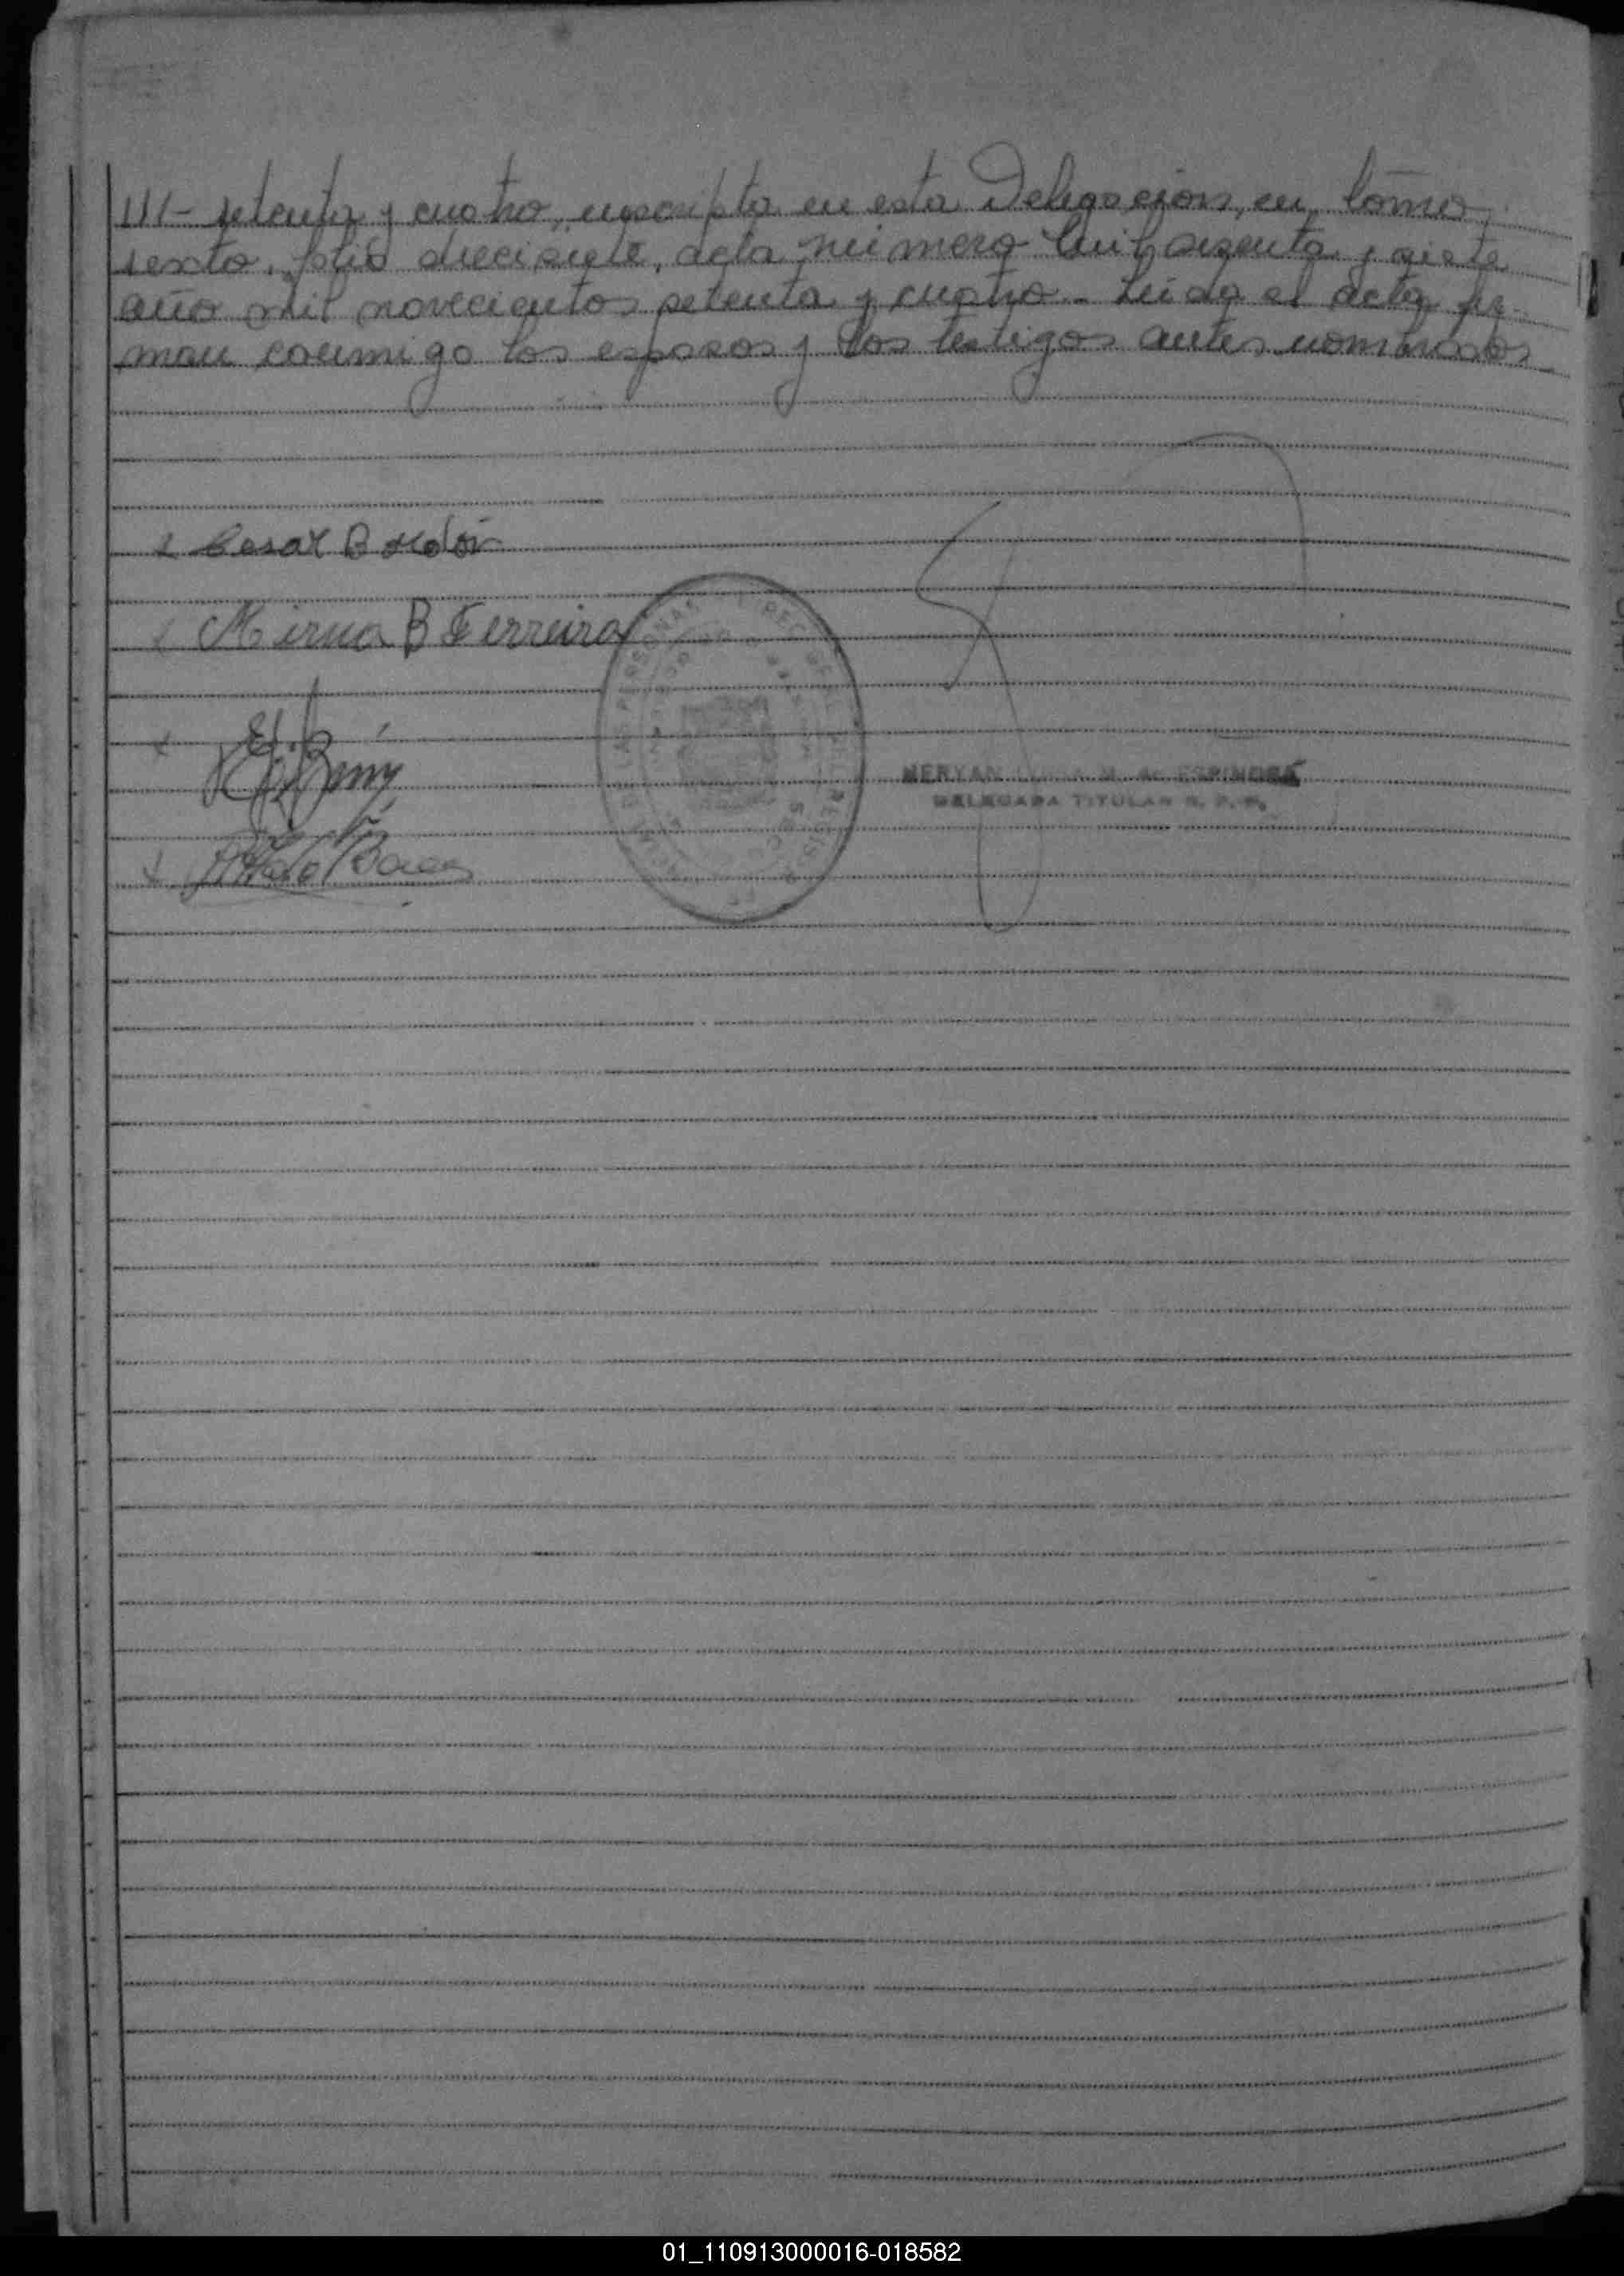 ///- setenta y cuatro, inscripta en esta Delegación, en tomo
sexto, folio diecisiete, acta número mil sesenta y siete
año mil novecientos setenta y cuatro.- Leida el acta fir-
man conmigo los esposos y los testigos antes nombrados
Cesar Bordón
Mirna B Ferreira
MERYAN M. de ESPINOZA
DELEGADA TITULAR R. C. P.
01_110913000016-018582